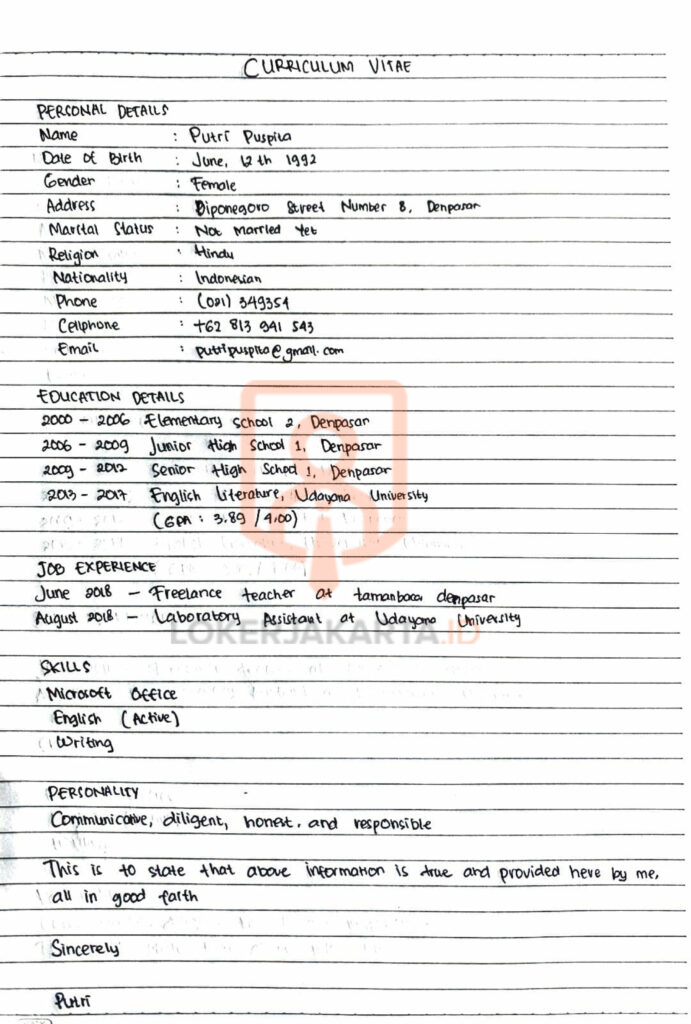 CURRICULUM VITAE
PERSONAL DETAILS
Name : Putri Puspita
Date of Birth : June, 12 th 1992
Gender : Female
Address : Diponegoro Street Number 8, Denpasar
Marital Status : Not Married Yet
Religion : Hindu
Nationality : Indonesian
Phone : (021) 349354
Cellphone : +62 813 941 543
Email : putripuspita@gmail.com
EDUCATION DETAILS
2000 - 2006 Elementary school 2, Denpasar
2006 - 2009 Junior High School 1, Denpasar
2009 - 2012 Senior High School 1, Denpasar
2013 - 2017 English Literature, Udayana University
(GPA : 3.89 / 4.00)
JOB EXPERIENCE
June 2018 - Freelance teacher at tamanbaca denpasar
August 2018 - Laboratory Assistant at Udayana University
LOKERJAKARTA.ID
SKILLS
Microsoft Office
English (Active)
Writing
PERSONALITY
Communicative, diligent, honest, and responsible
This is to state that above information is true and provided here by me,
all in good faith
Sincerely
Putri